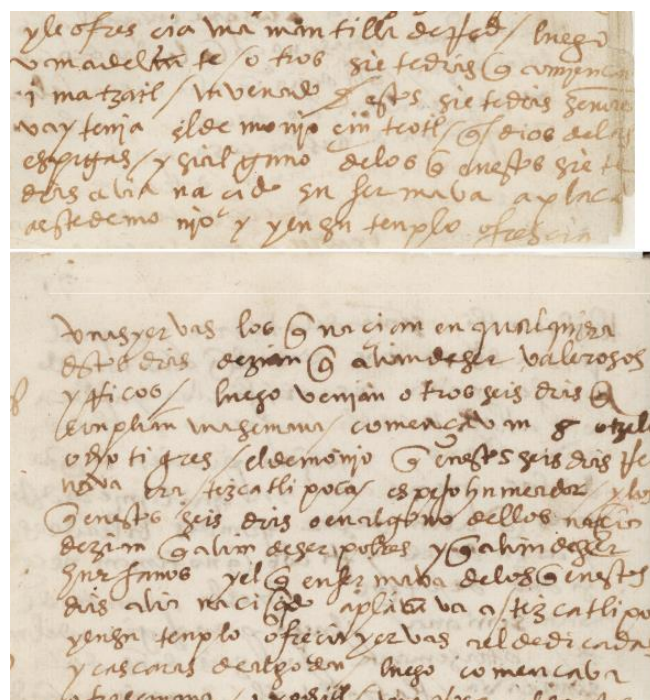 y le ofrescia una mantilla de red / luego
adelante / otros siete dias q̃ comiençan
1 matzatl / un venado / estos siete dias
tenia el demonio çinteotl / q̃ dios de las
espigas / y si alguno de los q̃ en estos siete
dias avia nacido enfermava aplaca
a este demonio y en su templo ofrescia
unas yervas los q̃ nacian en qualquiera
destos dias dezian q̃ avian de ser valerosos
y rricos / luego venian otros seis dias q̃
cunplian una semana / comencavan
tigres / el demonio q̃ en estos seis dias
era tezcatlipoca / espejo humeador / y los
q̃ en estos seis dias o en alguno dellos nacia
dezian q̃ avian de ser pobres y q̃ avian de ser
y el q̃ enfermava de los q̃ en estos
dias avia nacido aplacava a tezcatlipo
y en su templo ofrecia yervas a el dedicadas
y cascaras de algodon luego comencava
otra semana